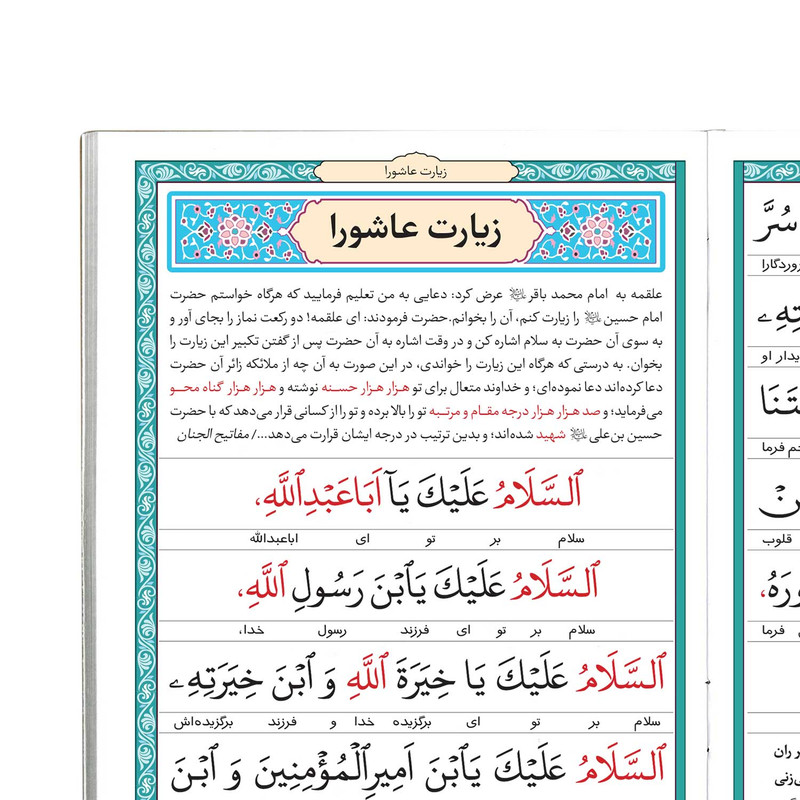 زیارت عاشورا
زیارت عاشورا
علقمه به امام محمد باقر عرض کرد: دعایی به من تعلیم فرمایید که هرگاه خواستم حضرت
امام حسین را زیارت کنم، آن را بخوانم.حضرت فرمودند: ای علقمه! دو رکعت نماز را بجای آور و
به سوی آن حضرت به سلام اشاره کن و در وقت اشاره به آن حضرت پس از گفتن تکبیر این زیارت را
بخوان. به درستی که هرگاه این زیارت را خواندی، در این صورت به آن چه از ملائکه زائر آن حضرت
دعا کرده‌اند دعا نموده‌ای؛ و خداوند متعال برای تو هزار هزار حسـنه نوشته و هزار هزار گناه محـو
می‌فرماید؛ و صد هزار هزار درجه مقـام و مرتبـه تو را بالا برده و تو را از کسانی قرار می‌دهد که با حضرت
حسین بن‌علی شهید شده‌اند؛ و بدین ترتیب در درجه ایشان قرارت می‌دهد.../ مفاتیح الجنان
اَلسَّلَامُ عَلَيْكَ يَآ اَبَاعَبْدِاللَّهِ،
سلام بر تو ای اباعبدالله
اَلسَّلَامُ عَلَيْكَ يَابْنَ رَسُولِ اللَّهِ،
سلام بر تو ای فرزند رسول خدا،
اَلسَّلَامُ عَلَيْكَ يَا خِيَرَةَ اللَّهِ وَ ابْنَ خِيَرَتِهِ
سلام بر تو ای برگزیده خدا و فرزند برگزیده‌اش
اَلسَّلَامُ عَلَيْكَ يَابْنَ اَمِيرِالْمُؤْمِنِينَ وَ ابْنَ
سُرَّ
دیدار او
قلوب
فرما